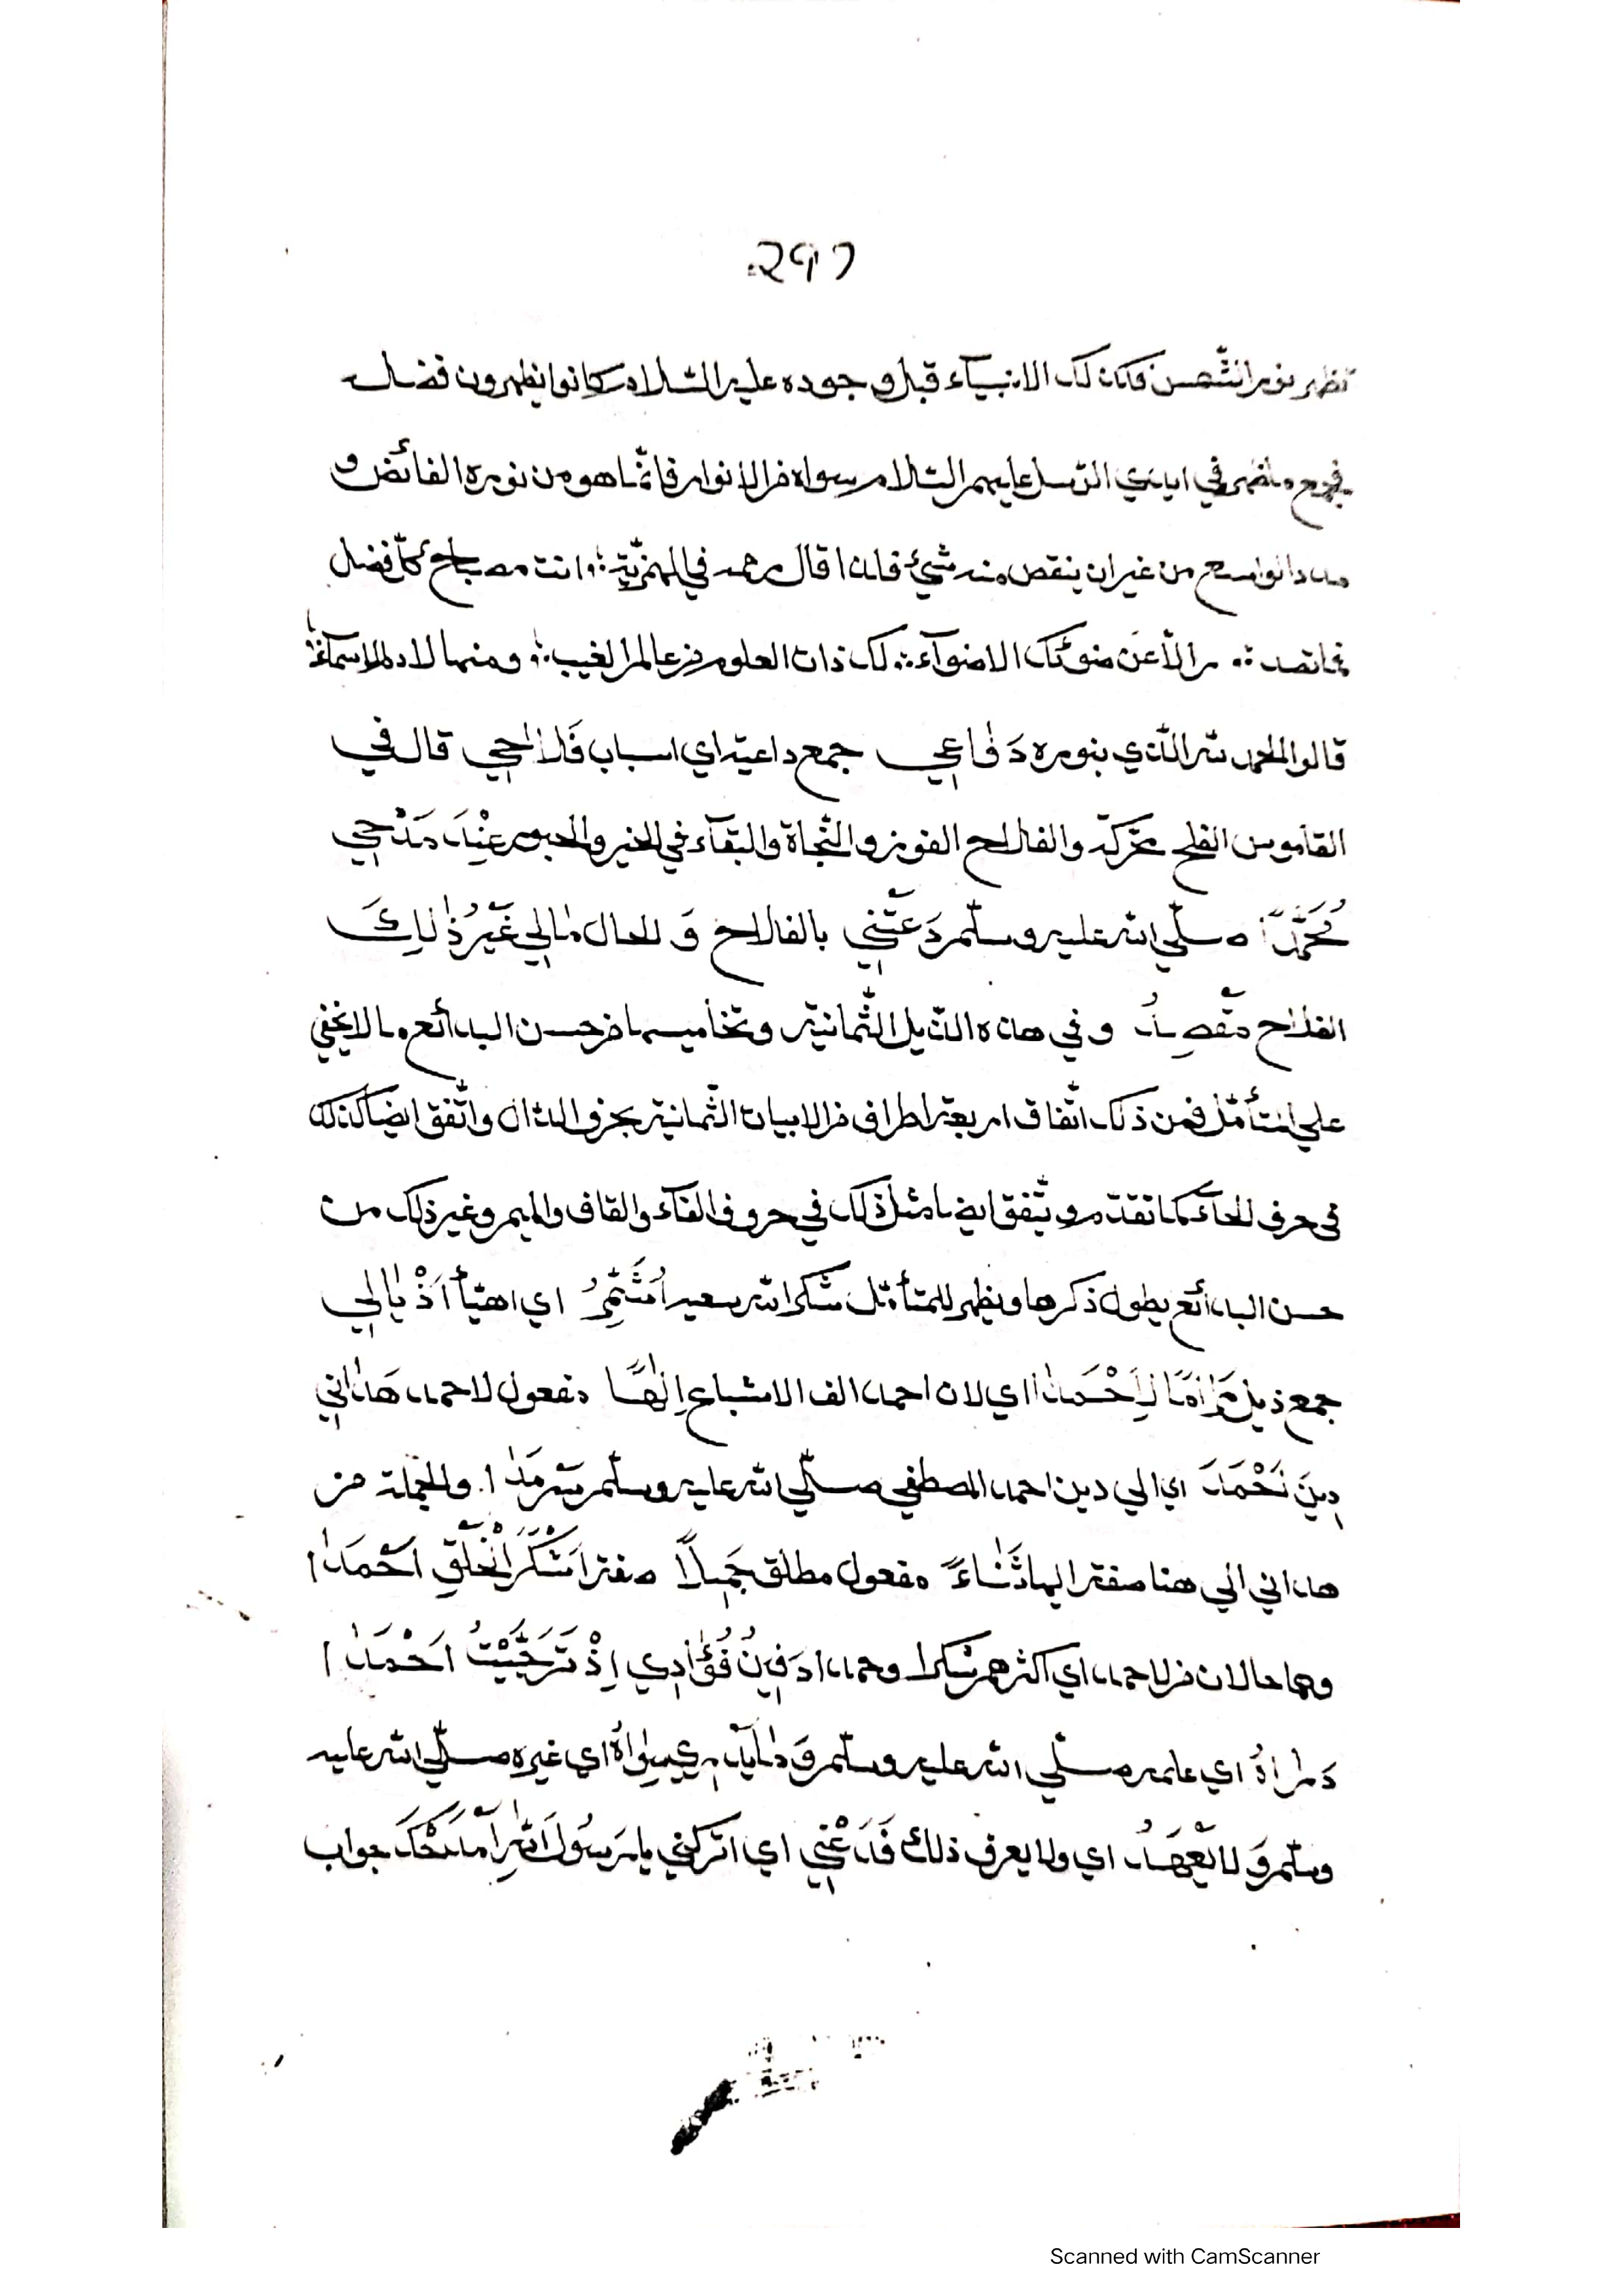 ٢٩٦
تظهر نور الشّمس فكذلك الانبيآء قبل وجوده عليه السّلام كانوا يظهرون فضله
فجميع ما ظهر في ايدي الرّسل عليهم السّلام سواه من الانوار فانّما هو من نوره الفائض و
مدده الواسع من غير ان ينقص منه شيئ فلذا قال رحمه في الهمزيّة ؛ انت مصباح كلّ فضل
فما تصد ؛ ر الّا عن ضوئك الاضوآء ؛ لك ذات العلوم من عالم الغيب ؛ ومنها لادم الاسمآء
قالوا الحمد لله الّذي بنوره دَوٰاعِي جمع داعية اي اسباب فَلَاحِي قال في
القاموس الفلح محرّكة والفلاح الفوز والنّجاة والبقآء في الخير والحبور عِنْدَ مَدْحِي
مُحَمَّدًا صلّي الله عليه وسلّم دَعَتْنِي بالفلاح وَ الحال مٰالِي غَيْرُ ذٰلِكَ
الفلاح مَقْصِدُ وفي هذه الذّيل الثّمانية وتخاميسها من حسن البدائع ما لا يخفي
علي المتأمّل فمن ذلك اتّفاق اربعة اطراف من الابيات الثّمانية بحرف الدال واتّفق ايضا كذلك
في حرف الحآء كما تقدّم ويتّفق ايضا مثل ذلك في حروف الفآء والقاف والميم وغير ذلك من
حسن البدائع يطول ذكرها ويظهر للمتأمّل شكر الله سعيه اُشَمِّرُ اي اهيّأ اَذْيٰالِي
جمع ذيل لِاَحْمَدٰا اي لان احمد الف الاشباع اِلٰهًا مفعول لاحمد هَدٰانِي
دِينَ اَحْمَدَ اي الي دين احمد المصطفي صلّي الله عليه وسلّم سَرْمَدٰا والجملة من
هداني الي هنا صفة الها ثَنٰاءً مفعول مطلق جَمِيلًا صفة اَشْكَرَ الْخَلْقِ اَحْمَدٰا
وهما حالان من لاحمد اي اكثرهم شكرا وحمدا دَفِينُ فُؤٰادِي اِذْ تَرَجَّيْتُ اَحْمَدٰا
دَرٰاهُ اي علمه صلّي الله عليه وسلّم وَمٰا يَدْرِي سِوٰاهُ اي غيره صلّي الله عليه
وسلّم وَلَا يَعْهَدُ اي ولا يعرف ذلك فَدَعْنِي اي اتركني يا رَسُولَ اللهِ اَمْدَحْكَ جواب
Scanned with CamScanner